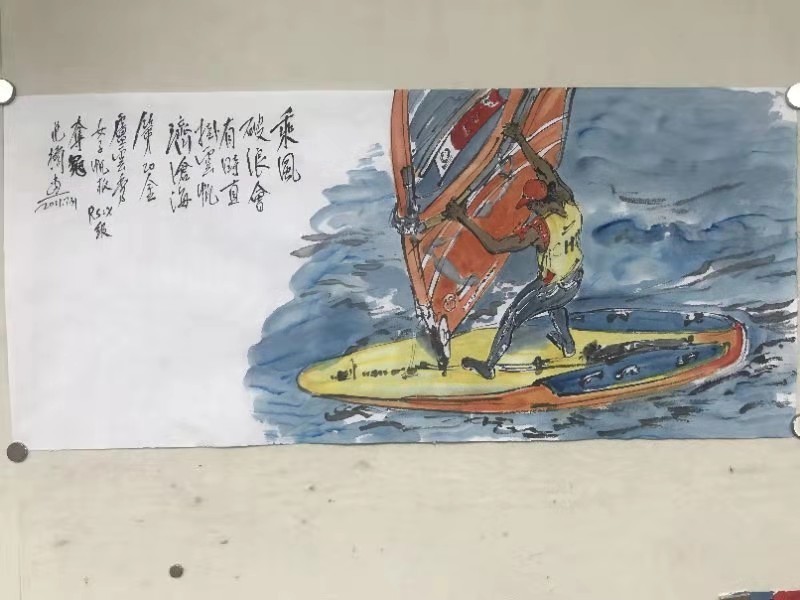 乘風
破浪會
有時直
掛雲帆
濟滄海
第20金
盧雲秀
女子帆板 RS:X級
奪冠